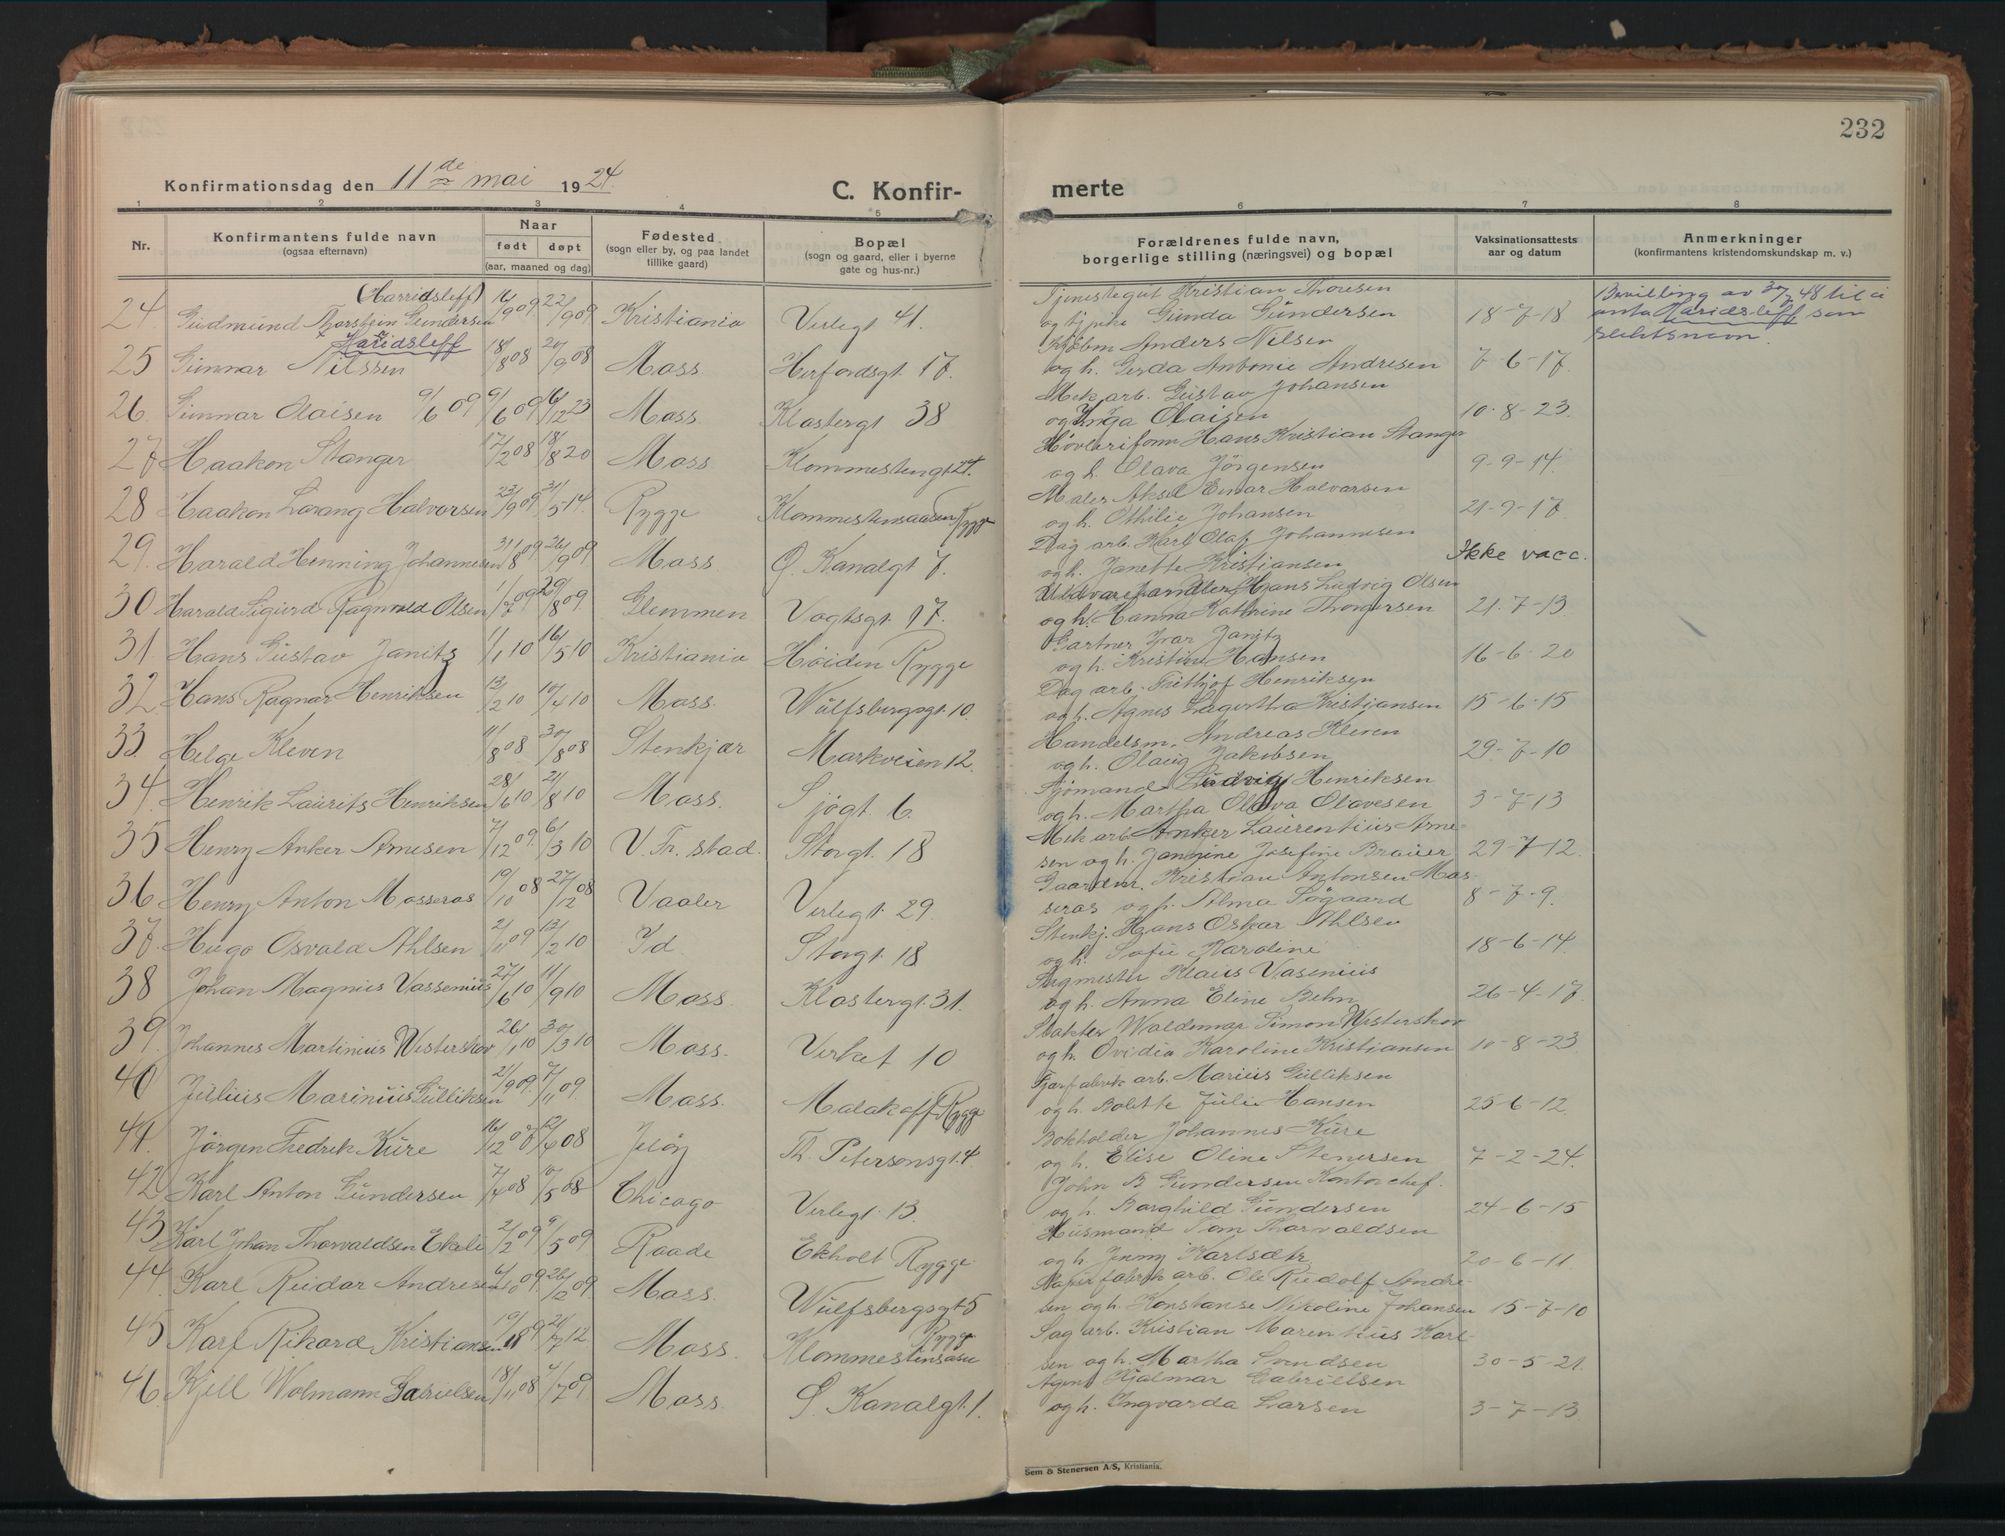 232
Konfirmationsdag den 11de mai 1924.
C. Konfir- merte
1 2 3 4 5 6 7 8
Nr.
Konfirmantens fulde navn
(ogsaa efternavn)
Naar
født døpt
(aar, maaned og dag)
Fødested
(sogn eller by, og paa landet
tillike gaard)
Bopæl
(sogn og gaard, eller i byerne
gate og hus-nr.)
Forældrenes fulde navn,
borgerlige stilling (næringsvei) og bopæl
Vaksinationsattests
aar og datum
Anmerkninger
(konfirmantens kristendomskundskap m. v.)
(Harridsleff)
24. Gudmund Thorstein Gundersen 16/9 09. 22/9 09 Kristiania Verlegt 41. Tjenestegut Kristian Thoresen
og tj.pike Gunda Gundersen 18-7-18 Bevilling av 30/7 48 til å
anta Haridsleff som
slektsnavn.
Haridsleff
25 Gunnar Nilssen 18/8 08 20/9 08 Moss. Herfordsgt. 17. Kjøbm Anders Nilsen
og h. Gerda Antonie Andresen 7-6-17.
26. Gunnar Olaisen 9/6 09 9/6 09 16/12 23 Moss. Klostergt 38 Mek arb. Gustav Johansen
og Inga Olaisen 10-8-23.
27 Haakon Stanger 17/2 08 18/8 20 Moss Klommestengt 24. Høvleriform Hans Kristian Stanger
og h. Olava Jørgensen 9-9-14.
28 Haakon Lorang Halvorsen 23/9 09. 31/5 14. Rygge Klommestensaasen Rygge Maler Aksel Einar Halvorsen
og h. Othilie Johansen 21-9-17.
29. Harald Henning Johannesen 31/8 09 26/9 09 Moss. Ø. Kanalgt 7. Dag arb. Karl Olaf Johannesen
og h. Janette Kristiansen Ikke vacc.
30 Harald Sigurd Ragnvald Olsen 1/7 09 29/8 09 Glemmen Vogtsgt. 17. Uldvarehandler Hans Ludvig Olsen
og h. Hanna Kathrine Thorgersen 21.7-13
31 Hans Gustav Janitz 1/1 10 16/5 10 Kristiania Høiden Rygge Gartner Ivar Janitz
og h. Kristine Hansen 16-6-20
32. Hans Ragnar Henriksen 13/2 10 10/4 10 Moss. Wulfsbergsgt. 10. Dag arb. Frithjof Henriksen
og h. Agnes Lagertha Kristiansen 15-6-15
33. Helge Kleven 11/8 08 30/8 08 Stenkjær Markveien 12. Handelsm. Andreas Kleven
og h. Olaug Jakobsen 29-7-10
34. Henrik Laurits Henriksen 28/6 10 21/8 10 Moss. Sjøgt 6. Sjømand Ludvig Henriksen
og h. Martha Olava Olavesen 3-7-13
35 Henry Anker Arnesen 7/12 09. 6/3 10 V. Fr. stad. Storgt. 18 Mek arb. Anker Laurentius Arne-
sen og h. Jannine Josefine Brauer 29-7-12.
36 Henry Anton Mosseros 19/10 08 27/12 08 Vaaler Verlegt. 29. Gaardbr. Kristian Antonsen Mos-
seros og h. Alma Søgaard 8-7-9.
37. Hugo Osvald Ahlsen 21/11 09 13/2 10 Id. Storgt. 18 Stenhj. Hans Oskar Ahlsen
og h. Sofie Karoline 18-6-14.
38 Johan Magnus Vassenius 27/6 10 11/9 10 Moss. Klostergt. 31. Sagmester Klaus Vasenius
og h. Anna Eline Behn 26-4-17.
39. Johannes Martinius Westerskov 26/1 10 30/3 10 Moss. Verket 10 Slakter Waldemar Simon Westerskov
og h. Ovidia Karoline Kristiansen 10-8-23
40 Julius Marinius Gulliksen 21/9 09. 7/11 09. Moss. Malakoff Rygge Tjærfabrik arb. Marius Gulliksen
og h. Bolette Julie Hansen 25-6-12.
41. Jørgen Fredrik Kure 16/12 07 /6 08 Jeløy Th. Petersonsgt. 4 Bokholder Johannes Kure
og h. Elise Oline Stenersen 7-2-24.
42 Karl Anton Gundersen 7/4 08 10/5 08 Chicago Verlegt. 13. John B Gundersen Kontorchef.
og h. Borghild Gundersen 24-6-15
43 Karl Johan Thorvaldsen Ekeli 2/2 09 9/5 09 Raade Ekholt Rygge Husmand Tom Thorvaldsen
og h Jenny Karlsætr 20-6-11.
44. Karl Reidar Andresen 6/10 09. 26/12 09. Moss. Wulfsbergsgt 5 Papirfabrik arb. Ole Rudolf Andre-
sen og h. Konstanse Nikoline Johansen 15-7-10
45 Karl Rikard Kristiansen 19/11 09 21/7 12 Moss. Klommestensaasen Rygge Sag arb. Kristian Marentius Karl-
sen og h. Martha Svendsen 30-5-21.
46 Kjell Wolmann Gabrielsen 18/11 08 4/7 09 Moss. S Kanalgt. 1. Agent Hjalmar Gabrielsen
og h. Ingvarda Larsen 3-7-13
Sem & Stenersen A/S, Kristiania.